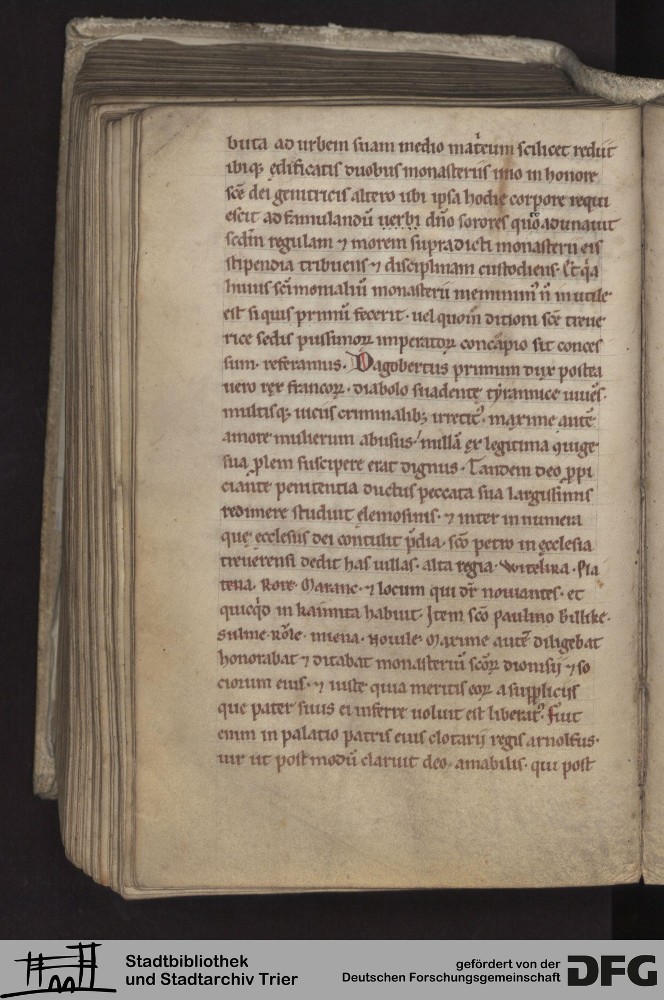 buta ad urbem suam medio matᷣeum scilicet rediit
ibiq; ędificatis duobus monasteriis uno in honore
scę dei genitricis altero ubi ipsa hodie corpore requi
escit ad famulandū uerbi dño sorores quo adunauit
scdm regulam ⁊ morem supradicti monasterii eis
stipendia tribuens ⁊ disciplinam custodiens.
huius scīmonialiū monasterii meminimꝰ ñ inutile
est si quis primū fecerit. uel quom̄ ditioni scę treue
rice sedis piissimoꝝ imperatoꝝ
sit conces
sum. referamus. Dagobertus primum dux postea
uero rex francoꝝ. diabolo suadente tẏrannice uiuēs.
multisq; uiciis criminalib; irretitꝰ. maxime autē
amore mulierum abusus. nullā ex legitima
sua ꝓlem suscipere erat dignus. Tandem deo ꝓpi
ciante penitentia ductus peccata sua largissimis
redimere studuit elemosinis. ⁊ inter innumera
quę ecclesiis dei contulit p̄dia. scō petro in ęcclesia
treuerensi dedit has uillas. alta regia. Witelira. Pla
tena. Rore. Marane. ⁊ locum qui dr̄ nouiantes. et
quicq̇d in kaimita habuit. Item scō paulino Billike.
Sulme. miena. Nouile. Maxime autē diligebat
honorabat ⁊ ditabat monasteriū scōꝝ dionisij ⁊ so
ciorum eius. ⁊ iuste quia meritis eoꝝ a suppliciis
que pater suus ei inferre uoluit est liberatꝰ. Fuit
enim in palatio patris eius clotarij regis arnolfus.
uir ut post modū claruit deo amabilis. qui post
Stadtbibliothek
und Stadtarchiv Trier
gefördert von der
Deutschen Forschungsgemeinschaft
DFG